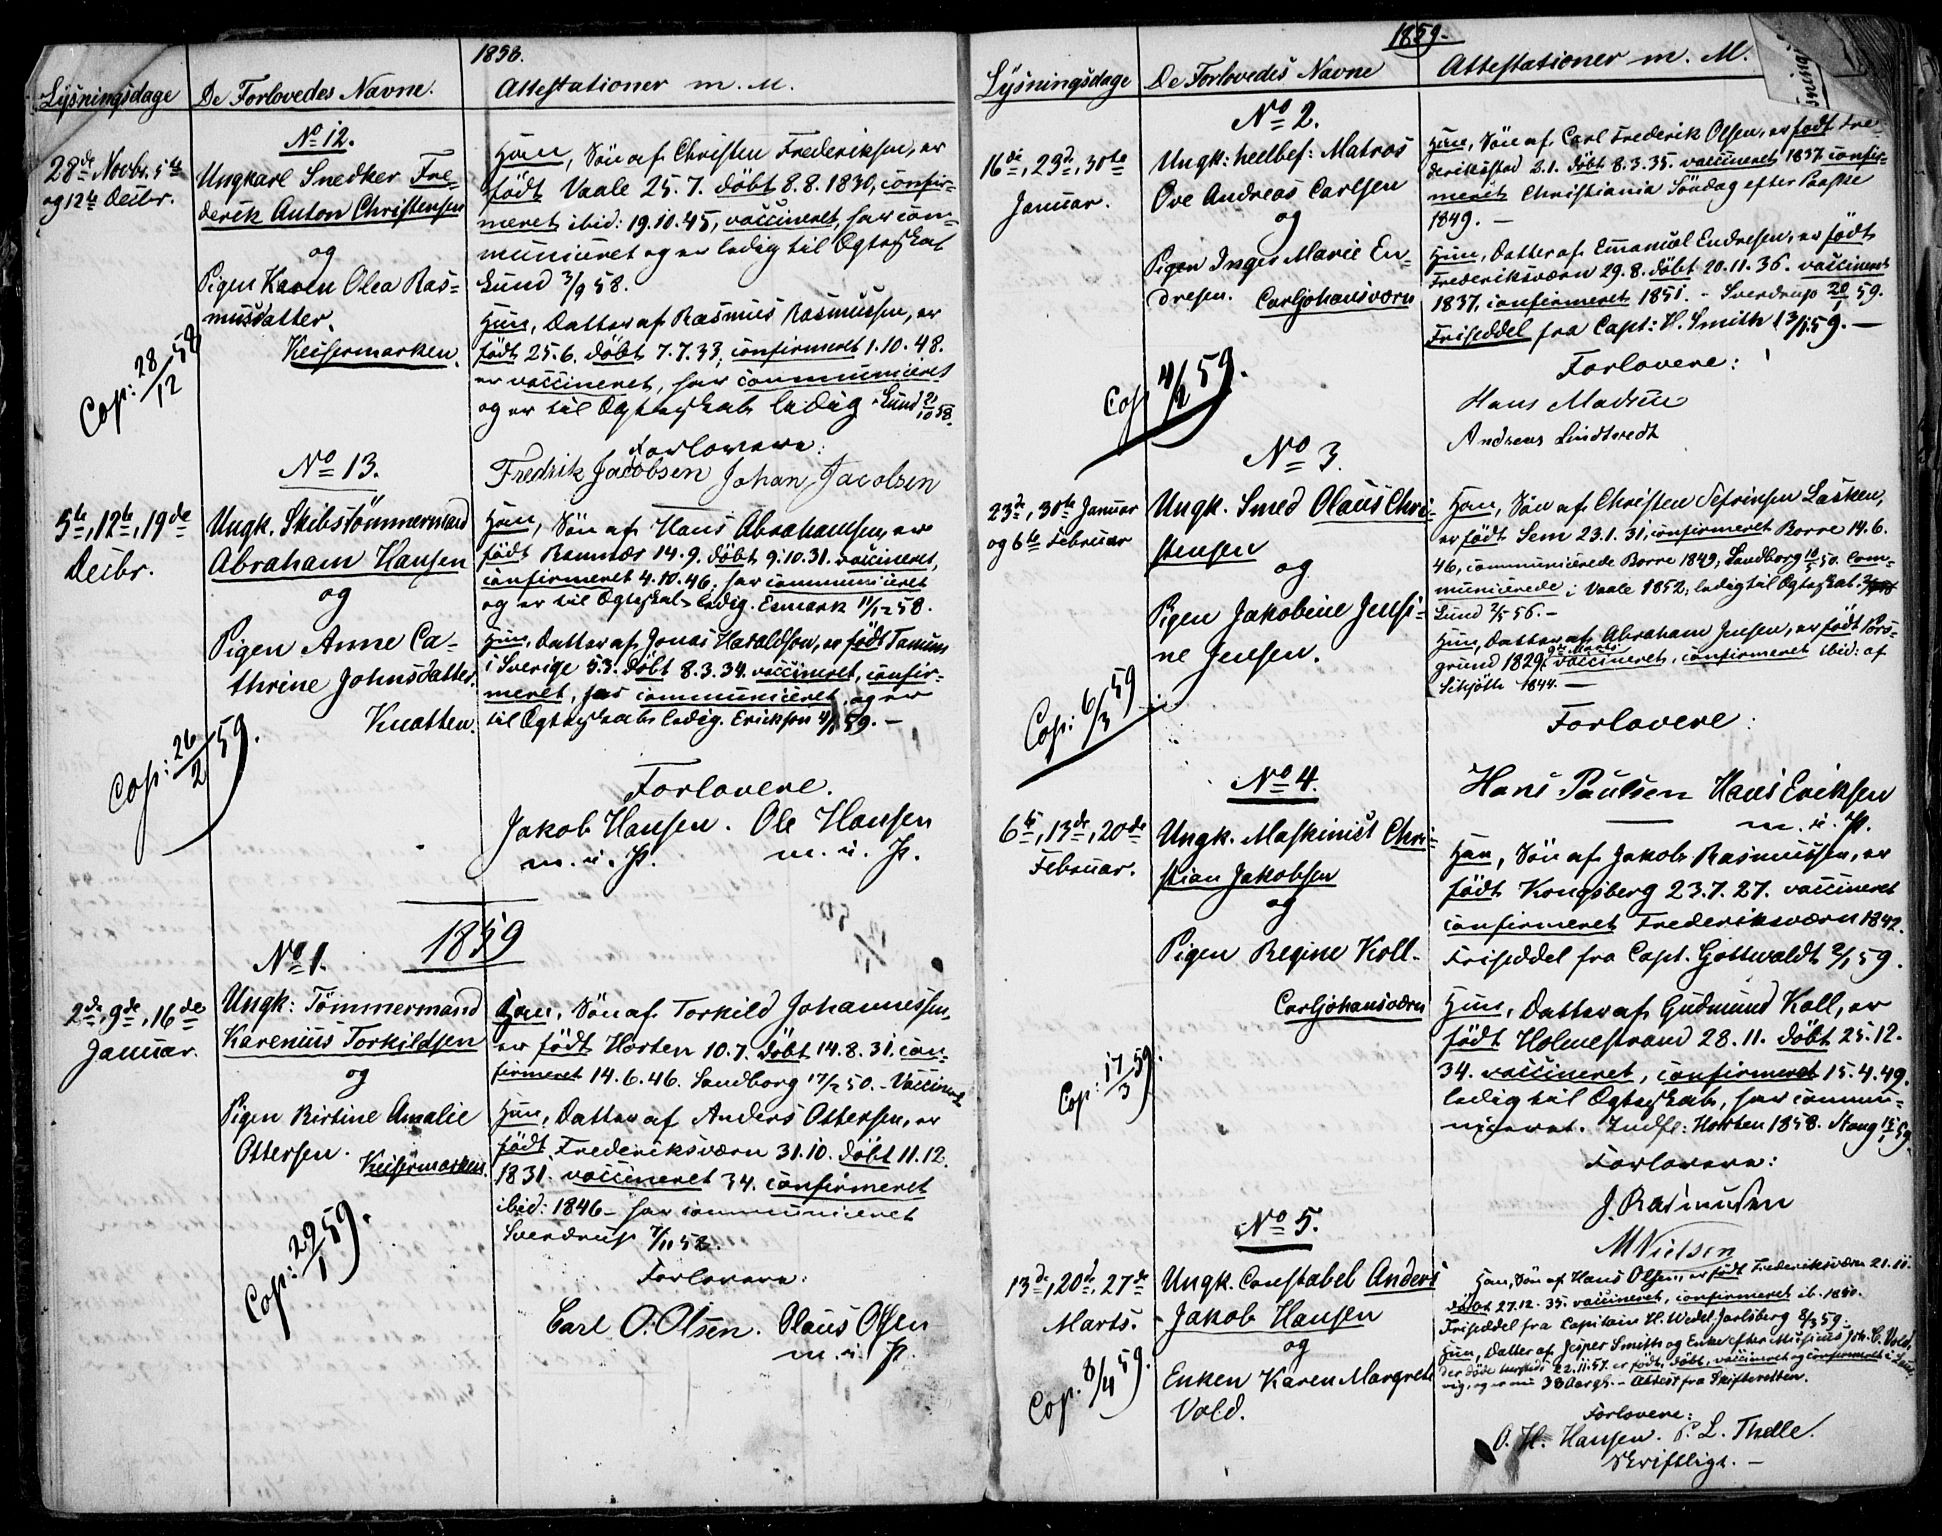 1858.
Lysningsdage
De Forlovedes Navne.
Attestationer m. M.
No 12.
28de Novbr. 5te
og 12te Decbr.
Ungkarl Snedker Fre-
derik Anton Christensen
og
Pigen Karen Olea Ras-
musdatter.
Keisermarken.
Cop: 28/12 58
Han, Søn af Christen Frederiksen, er
født Vaale 25.7. døbt 8.8.1830, confir-
meret ibid: 19.10.45, vaccineret, har com-
municeret og er ledig til Ægteskab
Lund 3/9 58.
Hun, Datter af Rasmus Rasmussen, er
født 25.6. døbt 7.7.33, confirmeret 1.10.48.
er vaccineret, har communiceret
og er til Ægteskab ledig. Lund 2/10 58.
Forlovere:
Fredrik Jacobsen Johan Jacobsen
No 13.
5te, 12te, 19de
Decbr.
Ungk. Skibstömmermand
Abraham Hansen
og
Pigen Anne Ca-
thrine Johnsdatter.
Knatten.
Cop: 26/2 59.
Han, Søn af Hans Abrahamsen, er
født Ramnæs 14.9. døbt 9.10.31. vaccineret,
confirmeret 4.10.46. har communiceret
og er til Ægteskab ledig. Esmark 11/12 58.
Hun, Datter af Jonas Haraldson, er født Tanum
i Sverige 5.3. døbt 8.3.34. vaccineret, confir-
meret, har communiceret og er
til Ægteskab ledig. Erickson 4/1 59. –
Forlovere.
Jakob Hansen. Ole Hansen
m. i. P. m. i. P.
1859
No 1.
2de, 9de, 16de
Januar.
Ungk: Tömmermand
Karenius Torkildsen
og
Pigen Birtine Amalie
Ottersen.
Keisermarken.
Cop: 29/1 59.
Han, Søn af Torkild Johannessen,
er født Horten 10.7. døbt 14.8.31. con-
firmeret 14.6.46. Sandborg 17/2 50. – Vaccineret
Hun, Datter af Anders Ottersen, er
født Frederiksværn 31.10. døbt 11.12.
1831. vaccineret 34. confirmeret
ibid: 1846 – har communiceret
Sverdrup 7/11 58.
Forlovere:
Carl O. Olsen. Olaus Olsen
m. i. P.
1859.
Lysningsdage
De Forlovedes Navne
Attestationer m. M.
No 2.
16de, 23de, 30te
Januar.
Ungk: hellbef: Matros
Ove Andreas Carlsen
og
Pigen Inger Marie En-
dresen. Carljohansværn
Cop 4/2 59.
Han, Søn af Carl Frederik Olsen, er født Fre-
derikstad 2.1. døbt 8.3.35. vaccineret 1837. confir-
meret Christiania Søndag efter Paaske
1849. –
Hun, Datter af Emanuel Endresen, er født
Frederiksværn 29.8. døbt 20.11.36. vaccineret
1837, confirmeret 1851. – Sverdrup 20/1 59.
Friseddel fra Capt: H. Smith 13/1 59. –
Forlovere:
Hans Madsen
Andreas Lindtvedt
No 3.
23de, 30te Januar
og 6te Februar
Ungk. Smed Olaus Chri-
stensen
og
Pigen Jakobine Jensi-
ne Jensen.
Cop: 6/3 59
Han, Søn af Christen Sefrinsen Lasken,
er født Sem 23.1.31, confirmeret Borre 14.6.
46, communicerede Borre 1849, Sandborg 16/5 50. Com-
municerede i Vaale 1852, ledig til Ægteskab.
Lund 2/5 56. –
Hun, Datter af Abraham Jensen, er født Pors-
grund 1829. 9de Marts vaccineret, confirmeret ibid: af
Schjøth 1844. –
Forlovere:
Hans Paulsen Hans Eriksen
m. i. P.
No 4.
6te, 13de, 20de
Februar.
Ungk. Maskinist Chri-
stian Jakobsen
og
Pigen Regine Koll.
Carljohansværn
Cop: 17/3 59.
Han, Søn af Jakob Rasmussen, er
født Kongsberg 23.7.27. vaccineret
confirmeret Frederiksværn 1842.
Friseddel fra Capt. Gottwaldt 2/1 59.
Hun, Datter af Gudmund Koll, er
født Holmestrand 28.11. døbt 25.12.
34. vaccineret, confirmeret 15.4.49.
ledig til Ægteskab, har commu-
niceret. Indfl: Horten 1858. Neug 15/1 59.
Forlovere:
J. Rasmussen
M Nielsen
No 5.
13de, 20de, 27de
Marts.
Ungk. Constabel Anders
Jakob Hansen
og
Enken Karen Margrete
Vold.
Cop. 8/4 59.
Han, Søn af Hans Olsen, er født Frederiksværn 21.11.
døbt 27.12.35. vaccineret, confirmeret ib. 1850.
Friseddel fra Capitain H. Wedel Jarlsberg 8/3 59.
Hun, Datter af Jesper Smith og Enke efter Joh. C. Vold,
der døde 22.11.57. er født, døbt, vaccineret og confirmeret i Laur-
vig, og er nu 38 Aar gl. – Attest fra Skifteretten.
Forlovere:
O. H. Hansen. P. L. Thelle.
Skriftligt. –